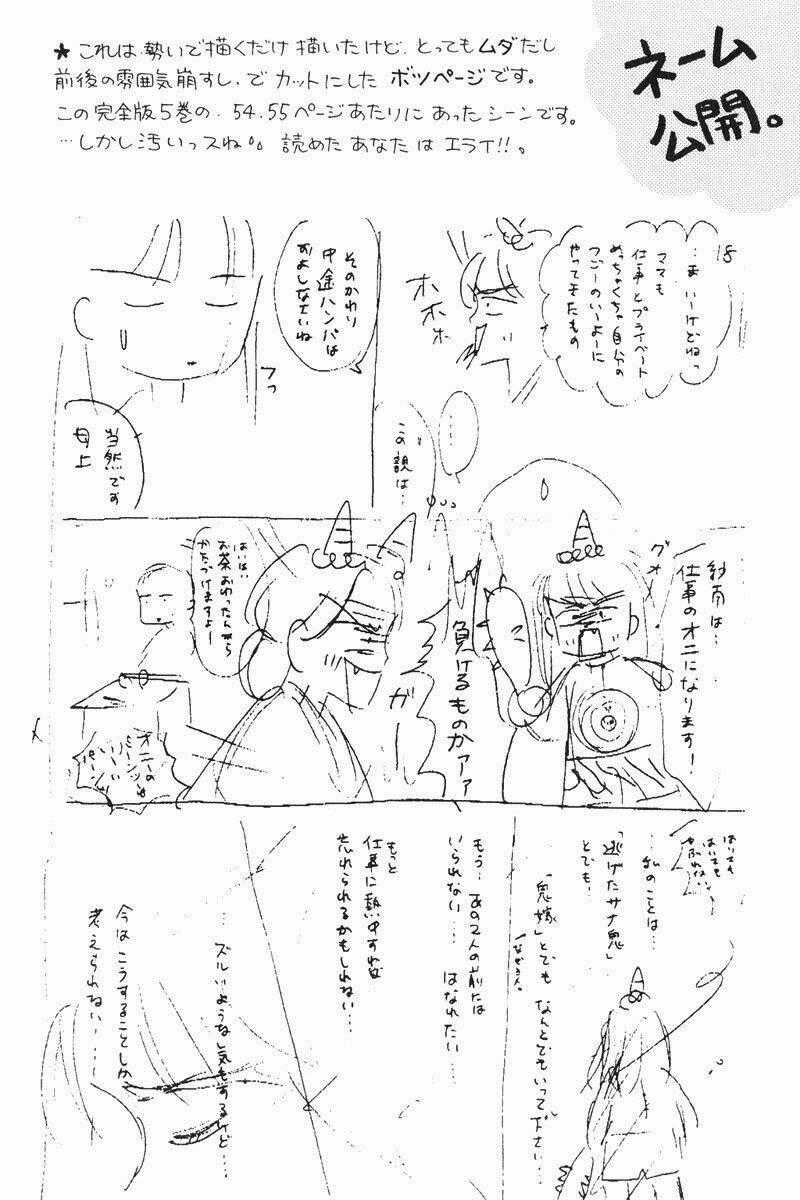 ネーム
公開。
★これは勢いで描くだけ描いたけど、とってもムダだし
前後の雰囲気崩すし、でカットにした ボツページです。
この完全版5巻の、54.55ページあたりにあったシーンです。
…しかし汚いっスね。 読めたあなたはエライ!!。
18
…まいーけどねっ
ママも
仕事とプライベート
めっちゃくちゃ自分の
つごーのいーよーに
やってきたもの
ホホホ
そのかわり
中途ハンパは
およしなさいね
フっ
当然です
母上
……
この親は…
紗南は…
仕事のオニになります!
グオー
負けるものかァァァ
ガー
はいはい
お茶おわったんなら
かたづけますよー
オニーの
パンツは
いーい
パンツー
はいても
はいても
…私のことは…
「逃げたサナ鬼」
とでも
「鬼嫁」とでも なんとでもいって下さい…
もう…あの2人の前には
いられない… はなれたい…
もっと
仕事に熱中すれば
忘れられるかもしれない…
…ズルいような気もするけど…
今は こうすることしか
考えられない…